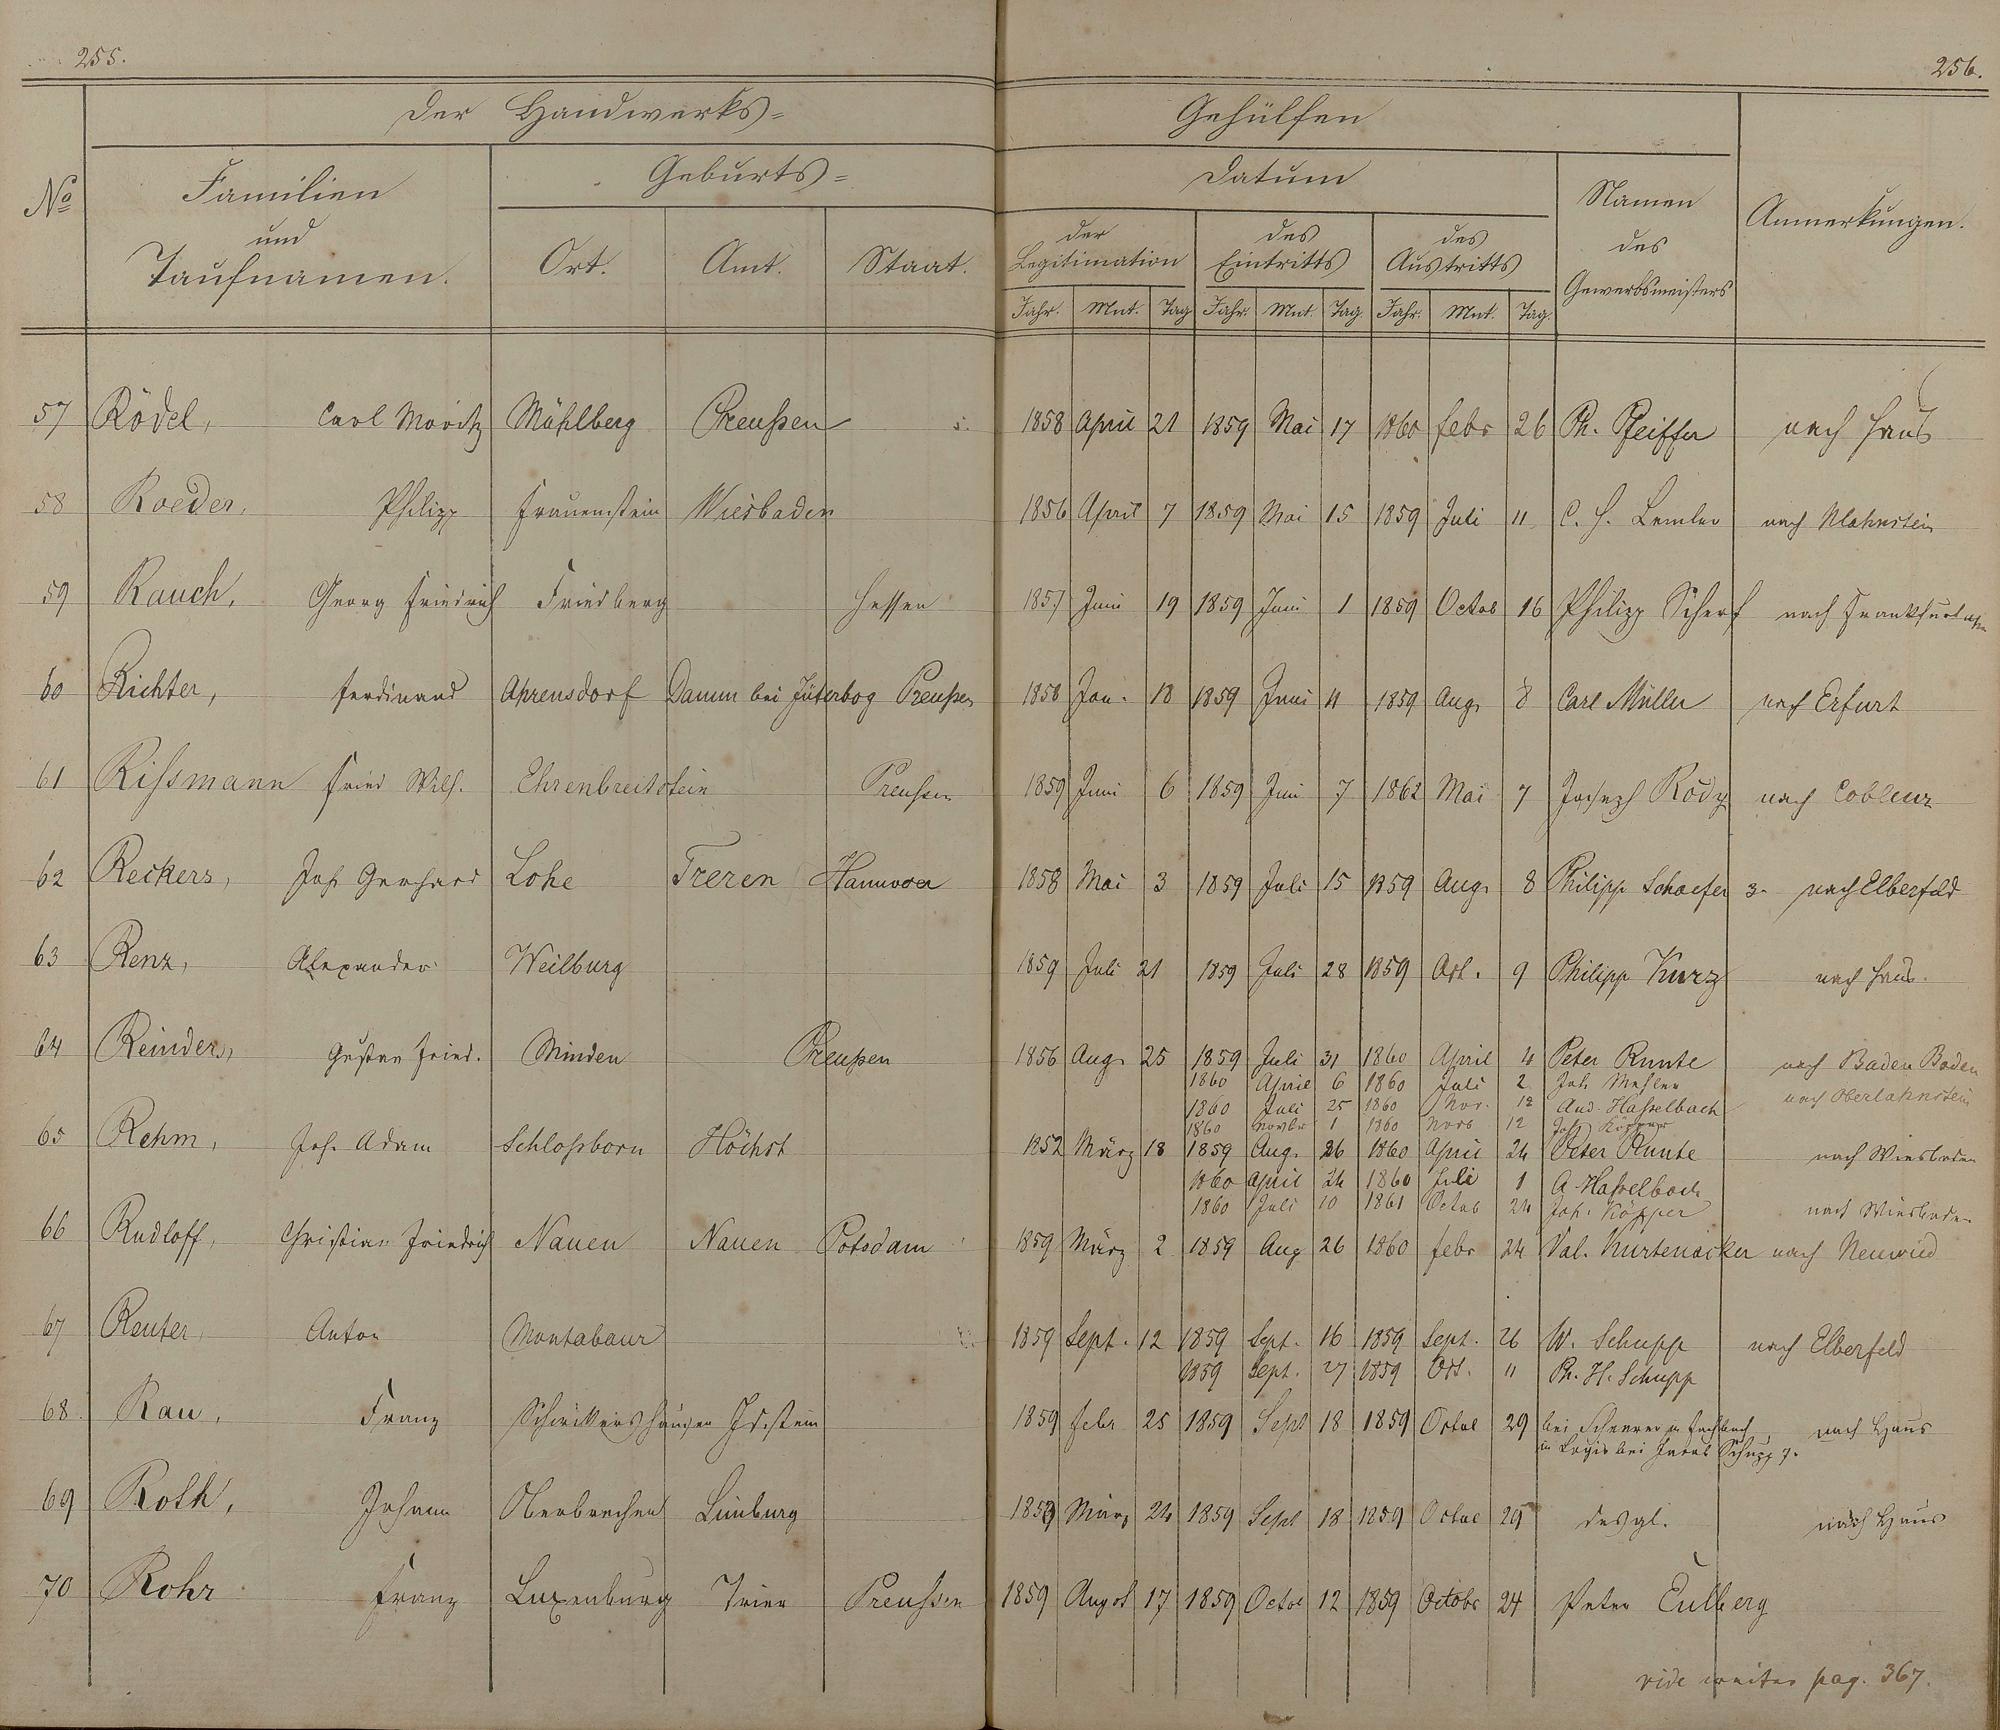 255.
256.
Der Handwerks= Gehülfen
No
Familien und Taufnamen.
Geburts=
Ort. Amt. Staat.
Datum
der Legitimation
des Eintritts
des Austritts
Jahr. Mnt. Tag Jahr. Mnt. Tag Jahr. Mnt. Tag.
Namen des Gewerbsmeisters
Anmerkungen.
57 Rödel, Carl Moritz Mühlberg Preußen 1858 April 21 1859 Mai 17 1860 Febr 26 Ph. Pfeiffer nach Haus
58 Roeder, Philipp Frauenstein Wiesbaden 1856 April 7 1859 Mai 15 1859 Juli 11 C. H. Lemler nach
59 Rauch, Georg Friedrich Friedberg Hessen 1857 Juni 19 1859 Juni 1 1859 Octob 16 Philipp Scherf nach Frankfurt
60 Richter, Ferdinand Ahrensdorf Damm bei Jüterbog Preußen 1858 Jan. 18 1859 Juni 11 1859 Aug. 8 Carl Müller nach Erfurt
61 Rißmann Fried Wilh. Ehrenbreitstein Preußen 1859 Juni 6 1859 Juni 7 1862 Mai 7 Joseph Rody nach Coblenz
62 Reckers, Joh Gerhard Lohe Freren Hannover 1858 Mai 3 1859 Juli 15 1859 Aug. 8 Philipp Schaefer 3. nach Elberfeld
63 Renz, Alexander Weilburg 1859 Juli 21 1859 Juli 28 1859 Oct. 9 Philipp Kurz nach Haus.
64 Reinders, Gustav Fried. Minden Preußen 1856 Aug. 25 1859 Juli 31 1860 April 4 Peter Runte nach Baden Baden
1860 April 6 1860 Juli 2 Joh.
1860 Juli 25 1860 Nov. 12 And. Haßelbach nach Oberlahnstein
1860 Novbr 1 1860 Novb 12 Joh. Köpper
65 Rehm, Joh. Adam Schloßborn Höchst 1852 März 18 1859 Aug. 26 1860 April 24 Peter Runte nach Wiesbaden
1860 April 24 1860 Juli 1 A. Haßelbach
1860 Juli 10 1861 Octob 24 Joh. Köpper nach Wiesbaden
66 Rudloff, Christian Friedrich Nauen Nauen Potsdam 1859 März 2 1859 Aug 26 1860 Febr 24 Val. Kurtenacker nach Neuwied
67 Reuter, Anton Montabaur 1859 Sept. 12 1859 Sept. 16 1859 Sept. 26 W. Schupp nach Elberfeld
1859 Sept. 27 1859 Oct. 11 Ph. H. Schupp
68. Rau, Franz Idstein 1859 Febr 25 1859 Sept 18 1859 Octob 29 bei nach Haus
in Logis bei Jacob Schupp 7.
69 Roth, Johann Oberbrechen Limburg 1859 März 24 1859 Sept 18 1859 Octob 29 desgl. nach Haus
70 Rohr Franz Luxenburg Trier Preußen 1859 August 17 1859 Octob 12 1859 Octobr 24 Peter Eulberg
vide weiter pag. 367.